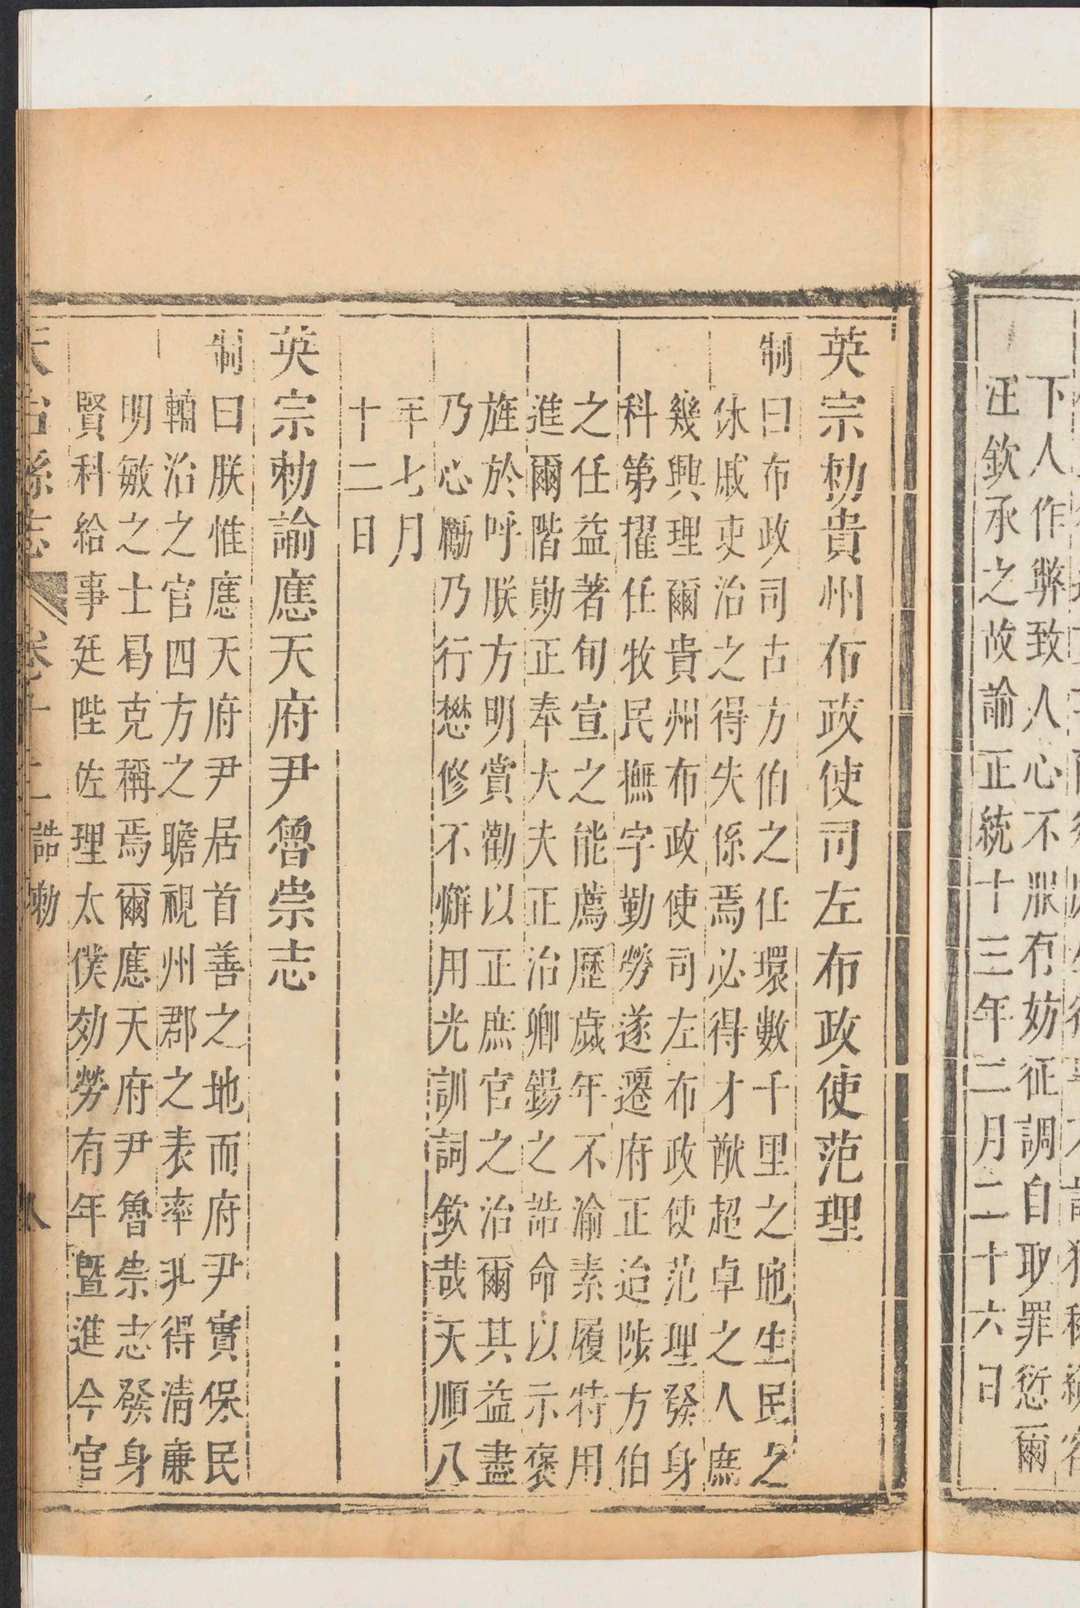 下人作弊致人心不服有妨征調自取罪愆爾
汪欽承之故諭正統十三年二月二十六日
英宗勅貴州布政使司左布政使范理
制曰布政司古方伯之任環數千里之地生民之
休戚吏治之得失係焉必得才猷超卓之人庶
幾興理爾貴州布政使司左布政使范理發身
科第擢任牧民撫字勤勞遂遷府正迨陟方伯
之任益著旬宣之能薦歷歲年不渝素履特用
進爾階勛正奉大夫正治卿錫之誥命以示褒
旌於呼朕方明賞勸以正庶官之治爾其益盡
乃心勵乃行懋修不懈用光訓詞欽哉天順八
年七月
十二日
英宗勅諭應天府尹魯崇志
制曰朕惟應天府尹居首善之地而府尹實保民
輔治之官四方之瞻視州郡之表率非得清廉
明敏之士曷克稱焉爾應天府尹魯崇志發身
賢科給事廷陛佐理太僕効勞有年暨進今官
天台縣志 卷十二 誥勅 八